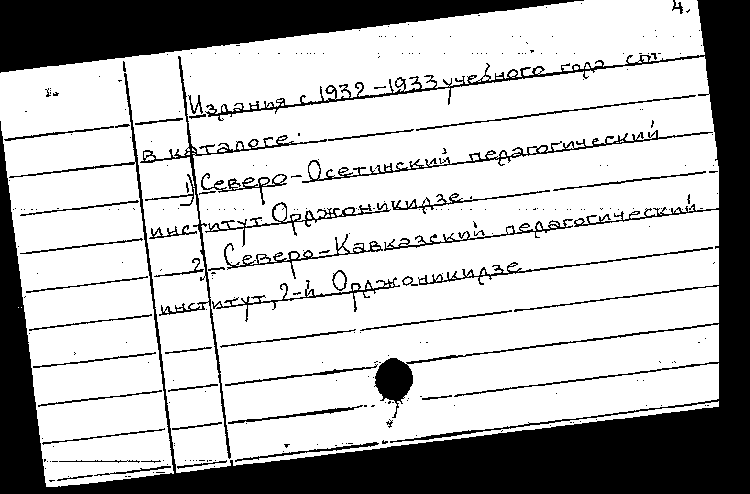 4.
Издания с 1932-1933 учебного года см.
в каталоге:
1) Северо-Осетинский педагогический
институт Орджоникидзе.
2) Северо-Кавказский педагогический
институт, 2-й. Орджоникидзе